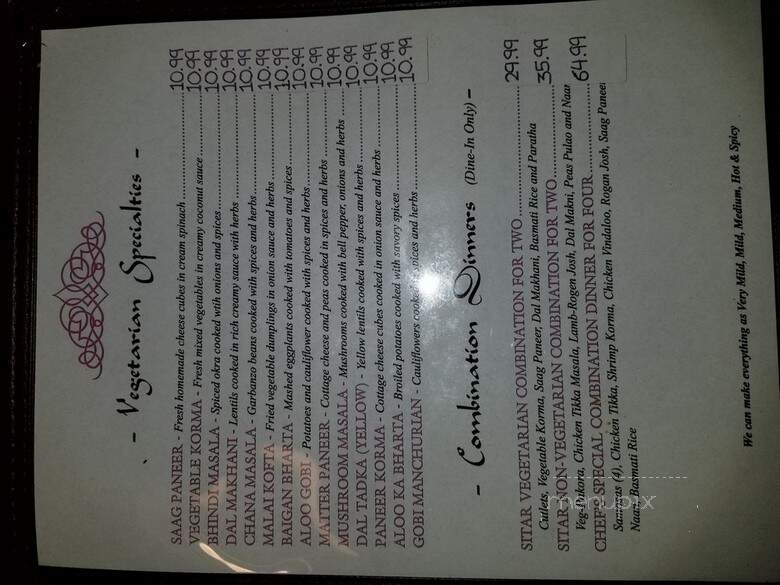 - Vegetarian Specialties -
SAAG PANEER - Fresh homemade cheese cubes in cream spinach 10.99
VEGETABLE KORMA - Fresh mixed vegetables in creamy coconut sauce 10.99
BHINDI MASALA - Spiced okra cooked with onions and spices 10.99
DAL MAKHANI - Lentils cooked in rich creamy sauce with herbs 10.99
CHANA MASALA - Garbanzo beans cooked with spices and herbs 10.99
MALAI KOFTA - Fried vegetable dumplings in onion sauce and herbs 10.99
BAIGAN BHARTA - Mashed eggplants cooked with tomatoes and spices 10.99
ALOO GOBI - Potatoes and cauliflower cooked with spices and herbs 10.99
MATTER PANEER - Cottage cheese and peas cooked in spices and herbs 10.99
MUSHROOM MASALA - Mushrooms cooked with bell pepper, onions and herbs 10.99
DAL TADKA (YELLOW) - Yellow lentils cooked with spices and herbs 10.99
PANEER KORMA - Cottage cheese cubes cooked in onion sauce and herbs 10.99
ALOO KA BHARTA - Broiled potatoes cooked with savory spices 10.99
GOBI MANCHURIAN - Cauliflowers cooked in spices and herbs 10.99
- Combination Dinners (Dine-In Only) -
SITAR VEGETARIAN COMBINATION FOR TWO 29.99
Cutlets, Vegetable Korma, Saag Paneer, Dal Makhani, Basmati Rice and Paratha
SITAR NON-VEGETARIAN COMBINATION FOR TWO 35.99
Veg-Pakora, Chicken Tikka Masala, Lamb-Rogen Josh, Dal Makni, Peas Pulao and Naan
CHEF SPECIAL COMBINATION DINNER FOR FOUR 64.99
Samosas (4), Chicken Tikka, Shrimp Korma, Chicken Vindaloo, Rogan Josh, Saag Paneer
Naan, Basmati Rice
We can make everything as Very Mild, Mild, Medium, Hot & Spicy
menupix